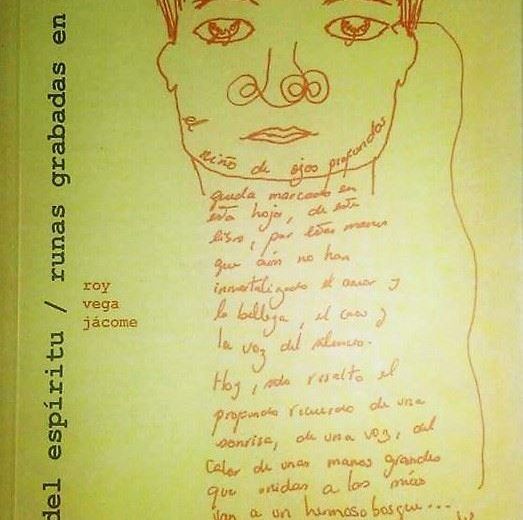 del espíritu / runas grabadas en
roy
vega
jácome
el niño de ojos profundos
queda marcado en
esta hoja, de este
libro, por estas manos
que aún no han
inmortalizado el amor y
la belleza, el caos y
la voz del silencio.
Hoy, solo resalto el
profundo recuerdo de una
sonrisa, de una voz, del
calor de unas manos grandes
que unidas a las mías
van a un hermoso bosque...